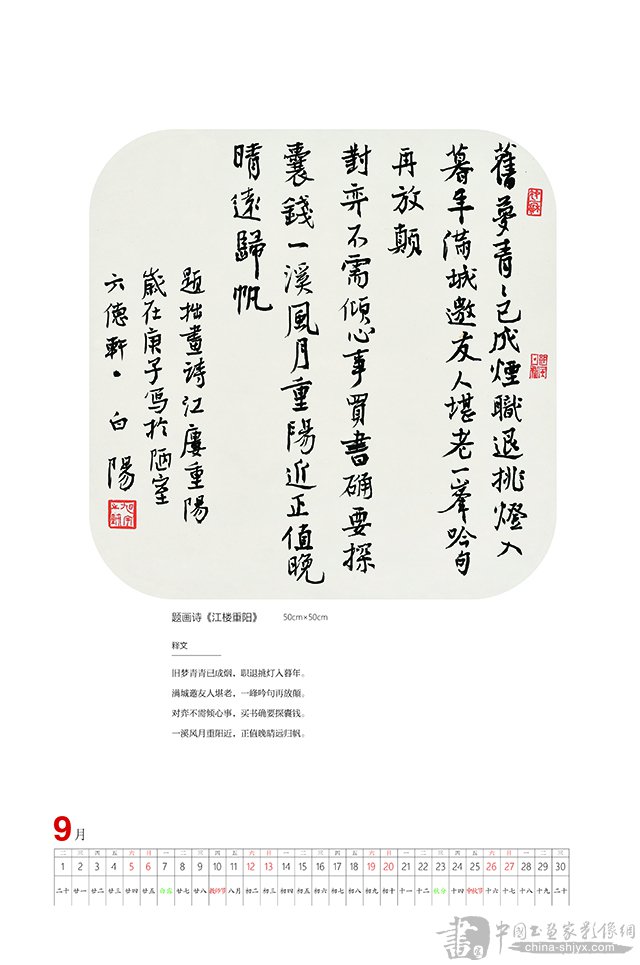 舊夢青〻已成煙職退挑燈入
暮年滿城邀友人堪老一峯吟句
再放顛
對弈不需傾心事買書确要探
囊錢一溪風月重陽近正值晚
晴遠歸帆
題拙畫詩江廔重陽
歲在庚子寫於陋室
六德軒·白陽
题画诗《江楼重阳》 50cm×50cm
释文
旧梦青青已成烟，职退挑灯入暮年。
满城邀友人堪老，一峰吟句再放颠。
对弈不需倾心事，买书确要探囊钱。
一溪风月重阳近，正值晚晴远归帆。
9月
二 三 四 五 六 日 一 二 三 四 五 六 日 一 二 三 四 五 六 日 一 二 三 四 五 六 日 一 二 三
1 2 3 4 5 6 7 8 9 10 11 12 13 14 15 16 17 18 19 20 21 22 23 24 25 26 27 28 29 30
二十 廿一 廿二 廿三 廿四 廿五 白露 廿七 廿八 教师节 八月 初二 初三 初四 初五 初六 初七 初八 初九 初十 十一 十二 秋分 十四 中秋节 十六 十七 十八 十九 二十
中國书画家影像網
www.china-shjyx.com